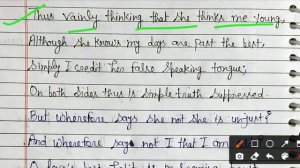 Thus vainly thinking that she thinks me young,
Although she knows my days are past the best,
Simply I credit her false speaking tongue;
On both sides thus is simple truth suppressed.
But wherefore says she not she is unjust?
And wherefore say not I that I am